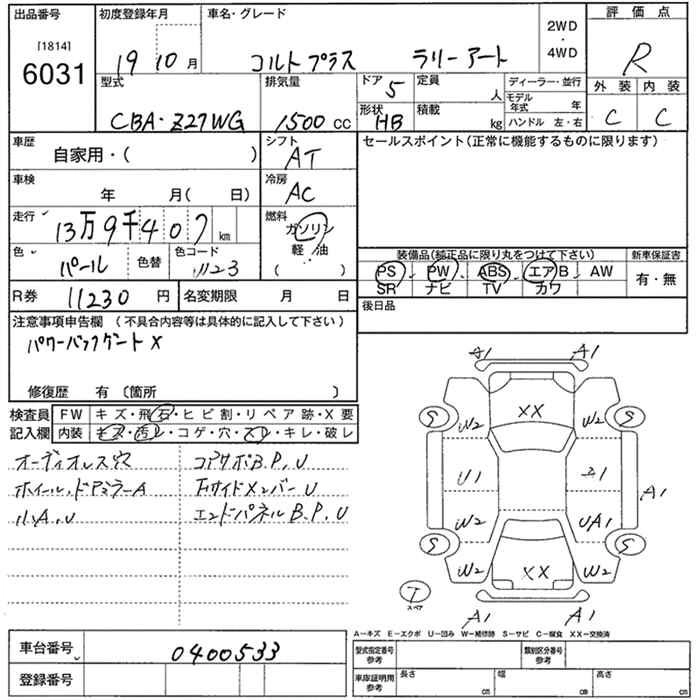 出品番号
[1814]
6031
初度登録年月
19 10 月
車名・グレード
コルトプラス ラリーアート
2WD
・
4WD
評価点
R
型式
CBA・Z27WG
排気量
1500 cc
ドア 5
形状 HB
定員 人
積載 kg
ディーラー・並行
モデル年式 年
ハンドル 左・右
外装 内装
C C
車歴
自家用・( )
シフト
AT
セールスポイント(正常に機能するものに限ります)
車検
年 月( 日)
冷房
AC
走行
13万9千407 km
燃料
ガソリン
軽・油
( )
色
パール
色替
色コード
1123
装備品(純正品に限り丸をつけて下さい)
PS PW ABS エアB AW
SR ナビ TV カワ
新車保証書
有・無
R券 11230 円
名変期限 月 日
後日品
注意事項申告欄 (不具合内容等は具体的に記入して下さい)
パワーバックゲート X
修復歴 有 〔箇所 〕
検査員記入欄
FW キズ・飛石・ヒビ割・リペア跡・X要
内装 キズ・汚レ・コゲ・穴・スレ・キレ・破レ
オーディオレス穴
コアサポB.P,U
ホイール,ドアミラーA
Fサイドメンバー U
小A,U
エンドパネル B.P,U
A1 A1
XX
S W2 W2 S
U1 エ1
A1
W2 UA1
S S
W2 XX W2
T
スペア
A1 A1
A-キズ E-エクボ U-凹み W-補修跡 S-サビ C-腐食 XX-交換済
車台番号
0400533
登録番号
型式指定番号 参考
類別区分番号 参考
車庫証明用 参考
長さ cm
幅 cm
高さ cm